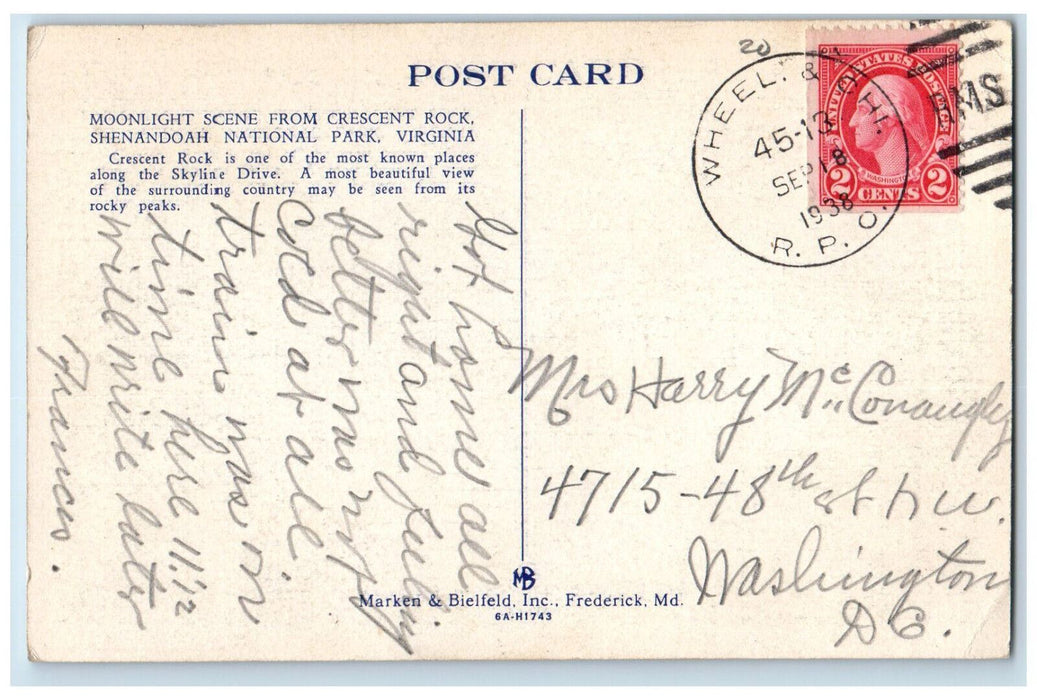 POST CARD
MOONLIGHT SCENE FROM CRESCENT ROCK,
SHENANDOAH NATIONAL PARK, VIRGINIA
Crescent Rock is one of the most known places
along the Skyline Drive. A most beautiful view
of the surrounding country may be seen from its
rocky peaks.
20
WHEEL. & CHI.
45-13
SEP 18
1938
R. P. O.
RMS
UNITED STATES POSTAGE
WASHINGTON
2 CENTS 2
Got home all
right and feeling
better was not
cold at all.
train was on
time here 11:12
will write later
Frances.
Mrs Harry McConaughy
4715-48th st N.W.
Washington
D C.
MB
Marken & Bielfeld, Inc., Frederick, Md.
6A-H1743